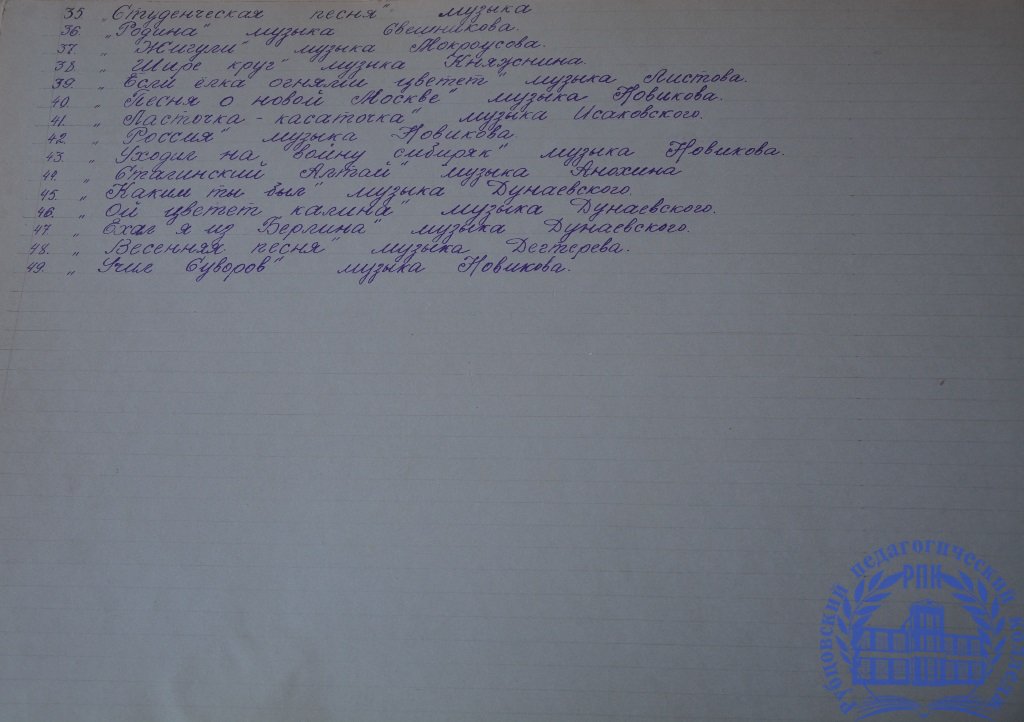 35. „Студенческая песня" музыка
36. „Родина" музыка Свешникова.
37. „Жигули" музыка Мокроусова.
38. „Шире круг" музыка Княжнина.
39. „Если ёлка огнями цветет" музыка Листова.
40. „Песня о новой Москве" музыка Новикова.
41. „Ласточка - касаточка" музыка Исаковского.
42. „Россия" музыка Новикова.
43. „Уходил на войну сибиряк" музыка Новикова.
44. „Сталинский Алтай" музыка Анохина
45. „Каким ты был" музыка Дунаевского.
46. „Ой цветет калина" музыка Дунаевского.
47. „Ехал я из Берлина" музыка Дунаевского.
48. „Весенняя песня" музыка Дегтерева.
49. „Учил Суворов" музыка Новикова.
Рубцовский педагогический колледж
РПК